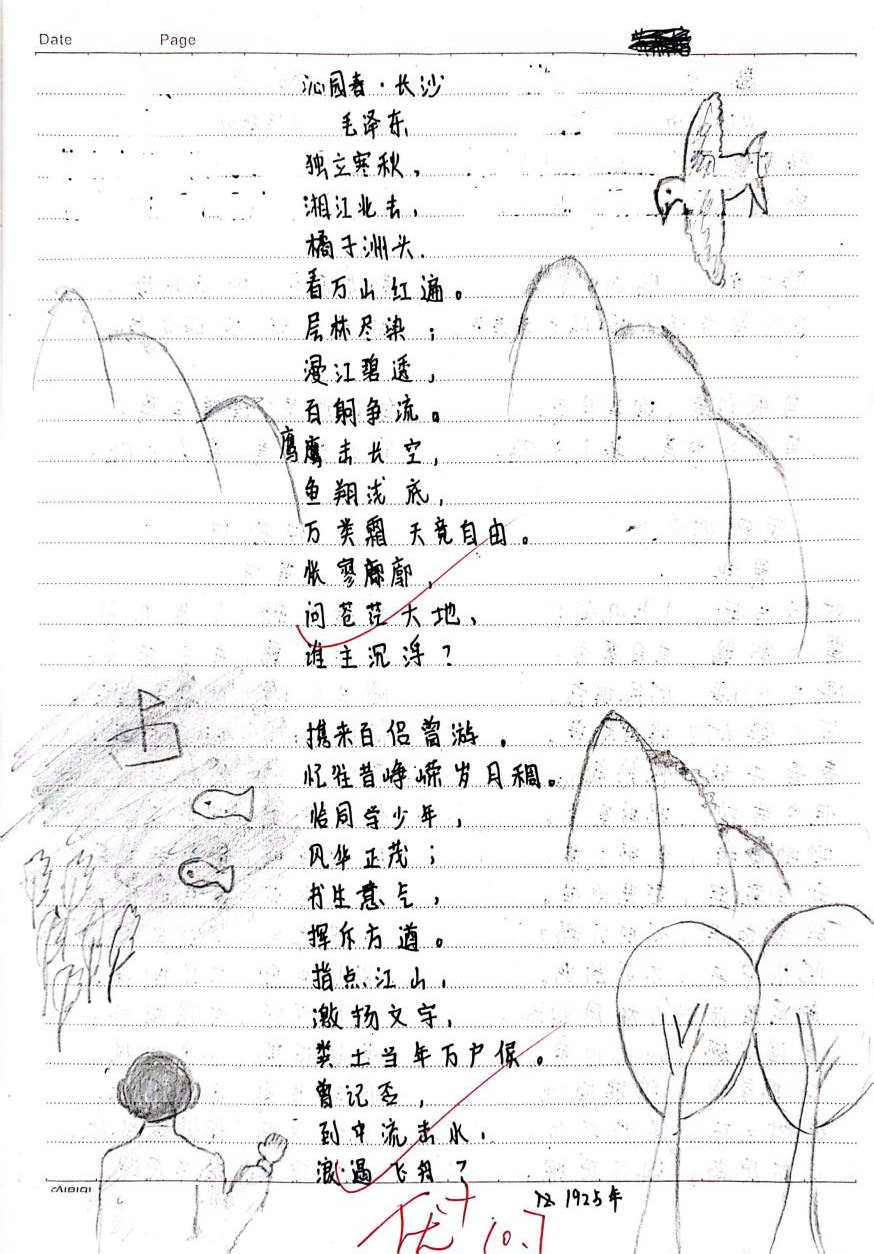 Date Page
沁园春·长沙
毛泽东
独立寒秋，
湘江北去，
橘子洲头．
看万山红遍。
层林尽染；
漫江碧透，
百舸争流。
鹰鹰击长空，
鱼翔浅底，
万类霜天竞自由。
怅寥廓，
问苍茫大地、
谁主沉浮？
携来百侣曾游．
忆往昔峥嵘岁月稠。
恰同学少年，
风华正茂；
书生意气，
挥斥方遒。
指点江山，
激扬文字，
粪土当年万户侯。
曾记否，
到中流击水，
浪遏飞舟？
1925年
优+ 10.7